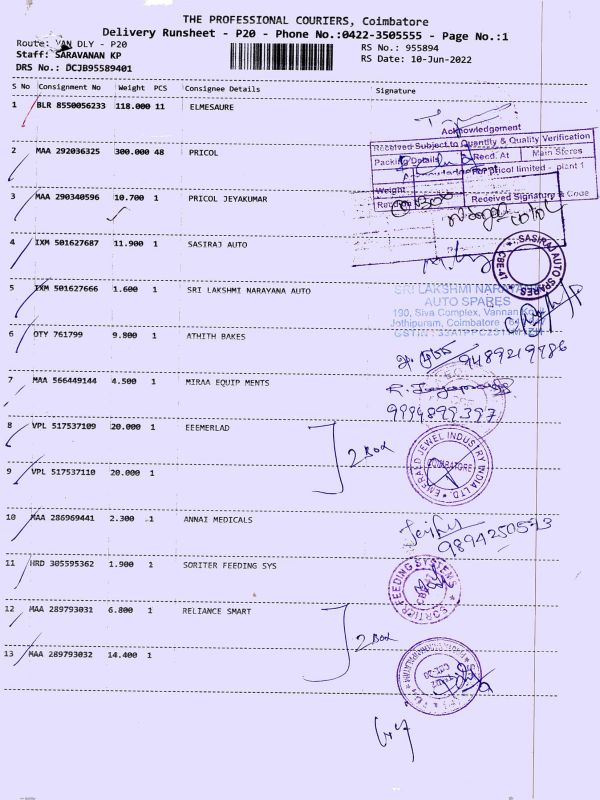 THE PROFESSIONAL COURIERS, Coimbatore
Delivery Runsheet - P20 - Phone No.:0422-3505555 - Page No.:1
Route: VAN DLY - P20
RS No.: 955894
Staff: SARAVANAN KP
RS Date: 10-Jun-2022
DRS No.: DCJB95589401
S No Consignment No Weight PCS Consignee Details Signature
1 BLR 8550056233 118.000 11 ELMESAURE
Acknowledgement
Received Subject to Quantity & Quality Verification
2 MAA 292036325 300.000 48 PRICOL
Packing Details Recd. At Main Stores
For pricol limited - plant 1
Weight
3 MAA 290340596 10.700 1 PRICOL JEYAKUMAR
Received Signature & Code
4 IXM 501627687 11.900 1 SASIRAJ AUTO
SASIRAJ AUTO SPARES
5 IXM 501627666 1.600 1 SRI LAKSHMI NARAYANA AUTO
SRI LAKSHMI NARAYANA
AUTO SPARES
190, Siva Complex, Vannan
Jothipuram, Coimbatore
6 OTY 761799 9.800 1 ATHITH BAKES
9489219786
7 MAA 566449144 4.500 1 MIRAA EQUIP MENTS
9994899397
8 VPL 517537109 20.000 1 EEEMERLAD
2 Box
EMERALD JEWEL INDUSTRY INDIA LTD.
COIMBATORE
9 VPL 517537110 20.000 1
10 MAA 286969441 2.300 1 ANNAI MEDICALS
9894250513
11 HRD 305595362 1.900 1 SORITER FEEDING SYS
SORTIER FEEDING SYSTEMS
12 MAA 289793031 6.800 1 RELIANCE SMART
2 Box
13 MAA 289793032 14.400 1